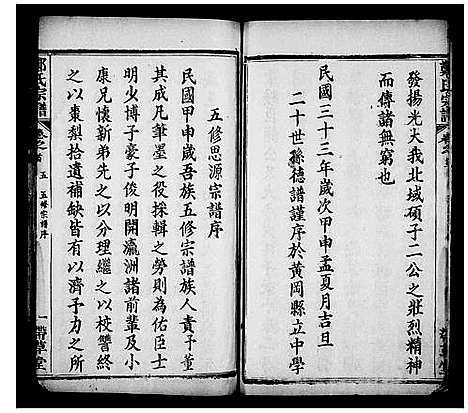 發揚光大我北域碩子二公之壯烈精神
而傳諸無窮也
民國三十三年歲次甲申孟夏月吉旦
二十世孫德譜謹序於黃岡縣立中學
五修思源宗譜序
民國甲申歲吾族五修宗譜族人責予董
其成凡筆墨之役採輯之勞則為佑臣士
明少博子豪子俊明開瀛洲諸前輩及小
康兄懷新弟先之以分理繼之以校讐終
之以棗梨拾遺補缺皆有以濟予力之所
鄭氏宗譜
卷之首
五 五修宗譜序
一帶草堂